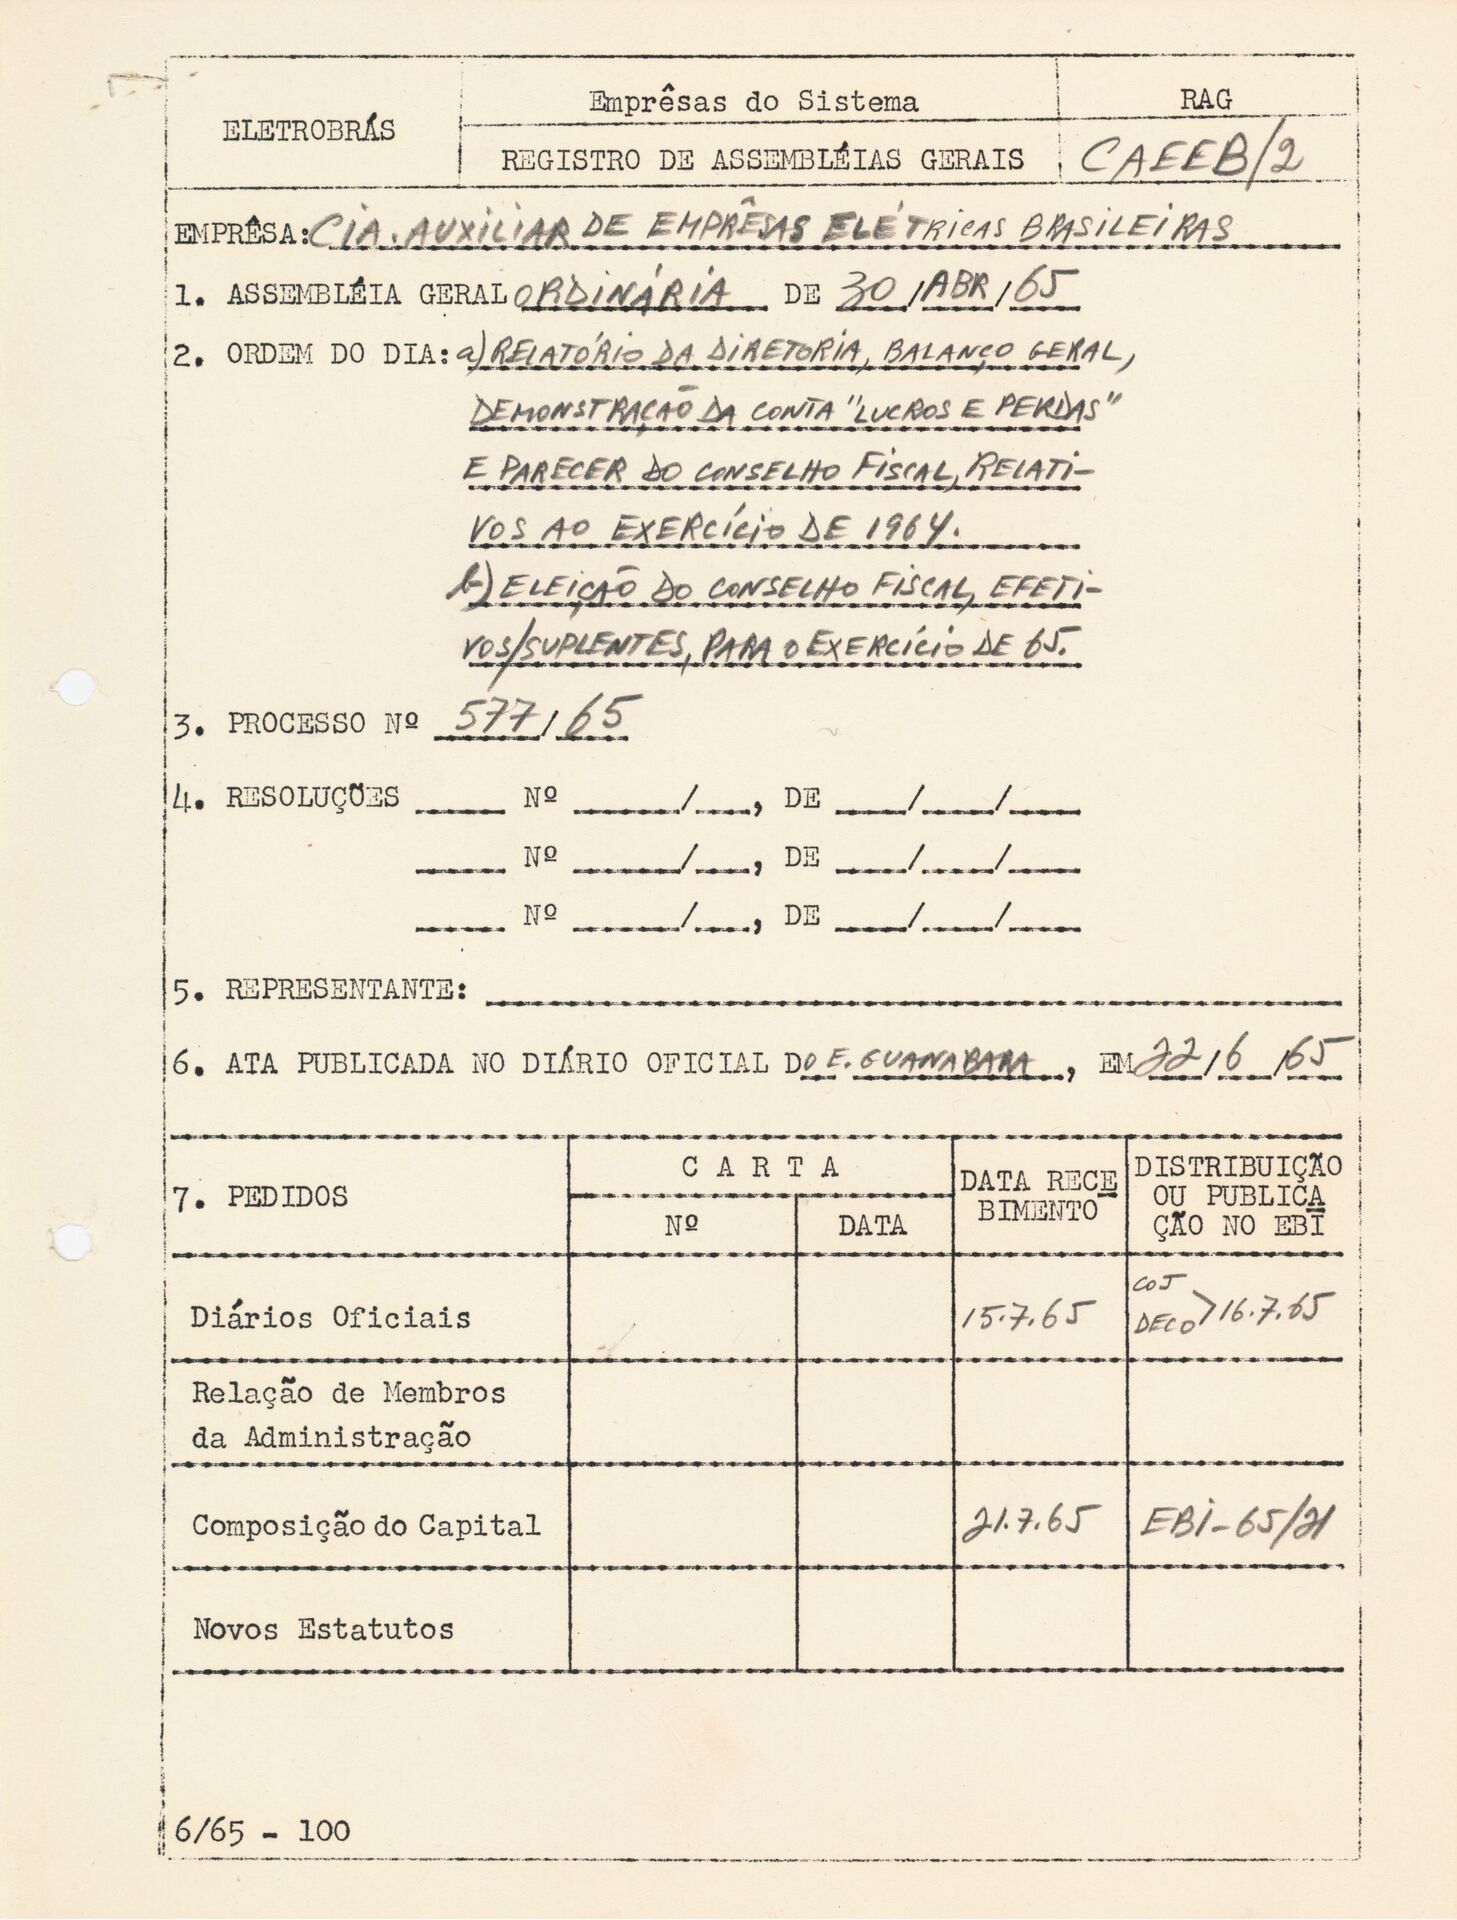 ELETROBRÁS
Emprêsas do Sistema
RAG
REGISTRO DE ASSEMBLÉIAS GERAIS
CAEEB/2
EMPRÊSA: CIA. AUXILIAR DE EMPRÊSAS ELÉTRICAS BRASILEIRAS
1. ASSEMBLÉIA GERAL ORDINÁRIA DE 30/ABR/65
2. ORDEM DO DIA: a) RELATÓRIO DA DIRETORIA, BALANÇO GERAL,
DEMONSTRAÇÃO DA CONTA "LUCROS E PERDAS"
E PARECER DO CONSELHO FISCAL, RELATI-
VOS AO EXERCÍCIO DE 1964.
b) ELEIÇÃO DO CONSELHO FISCAL, EFETI-
VOS/SUPLENTES, PARA O EXERCÍCIO DE 65.
3. PROCESSO Nº 577/65
4. RESOLUÇÕES ____ Nº ____/___, DE ___/___/___
____ Nº ____/___, DE ___/___/___
____ Nº ____/___, DE ___/___/___
5. REPRESENTANTE:
6. ATA PUBLICADA NO DIÁRIO OFICIAL DO E. GUANABARA, EM 22/6/65
7. PEDIDOS
C A R T A
Nº
DATA
DATA RECE
BIMENTO
DISTRIBUIÇÃO
OU PUBLICA
ÇÃO NO EBI
Diários Oficiais
15.7.65
COJ
DECO > 16.7.65
Relação de Membros
da Administração
Composição do Capital
21.7.65
EBI-65/21
Novos Estatutos
6/65 - 100